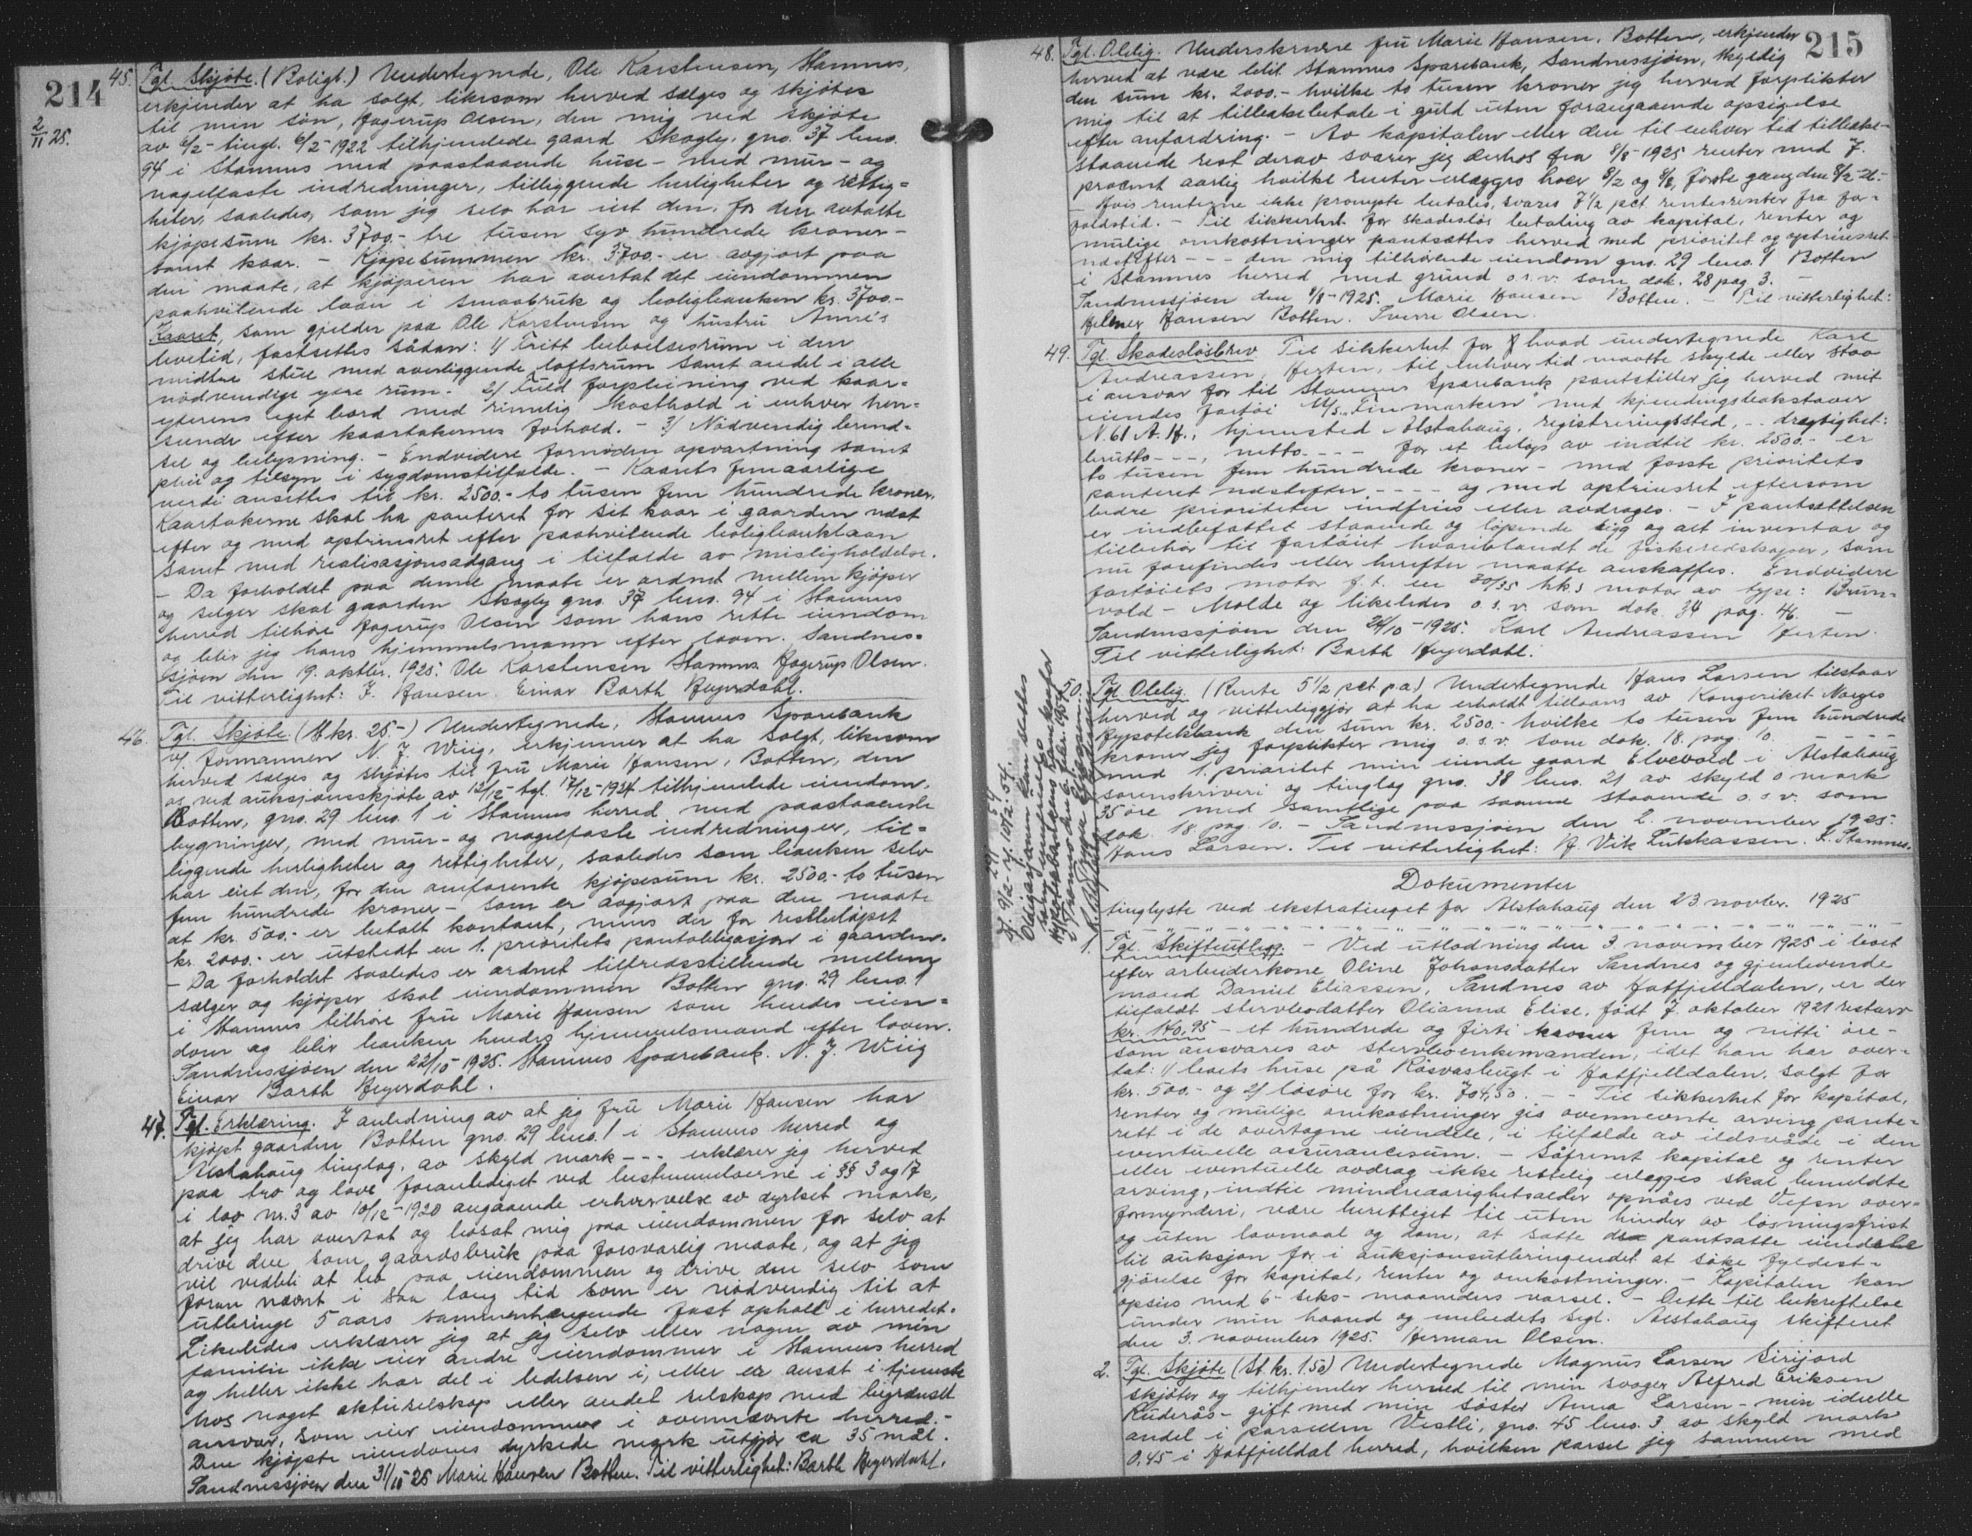 214
2/11 25.
45. Tgl. Skjøte. (Boligt.) Undertegnede, Ole Karstensen, Stamnes,
erkjender at ha solgt, likesom herved sælges og skjøtes
til min søn, Hagerup Olsen, den mig ved skjøte
av 6/2- tingl. 6/2-1922 tilhjemlede gaard Skogly, gno. 37 bno.
94 i Stamnes med paastaaende huse - med mur- og
nagelfaste indredninger, tilliggende herligheter og rettig-
heter, saaledes, som jeg selv har eiet den, for den avtalte
kjøpesum kr. 3700,- tre tusen syv hundrede kroner -
samt kaar. - Kjøpesummen kr. 3700.- er avgjort paa
den maate, at kjøperen har overtat det eiendommen
paahvilende laan i smaabruk og boligbanken kr. 3700.-
Kaaret, som gjelder paa Ole Karstensen og hustru Anne's
levetid, fastsettes sådan: 1/ Fritt beboelsesrum i den
midtre stue med overliggende loftsrum samt andel i alle
nødvendige ytre rum. 2/ Fuld forpleining ved kaar-
yterens eget bord med rimelig kosthold i enhver hen-
seende efter kaartakernes forhold. - 3/ Nødvendig brend-
sel og belysning. - Endvidere fornøden opvartning samt
pleie og tilsyn i sygdomstilfælde. - Kaarets femaarlige
verdi ansettes til kr. 2500.- to tusen fem hundrede kroner.
Kaartakerne skal ha panteret for sit kaar i gaarden næst
efter og med optrinsret efter paahvilende boligbanklaan
samt med realisasjonsadgang i tilfælde av misligholdelse.
- Da forholdet paa denne maate er ordnet mellem kjøper
og selger skal gaarden Skogly gno. 37 bno. 94 i Stamnes
herred tilhøre Hagerup Olsen som hans rette eiendom
og blir jeg hans hjemmelsmann efter loven. Sandnes-
sjøen den 19. oktbr. 1925. Ole Karstensen Stamnes. Hagerup Olsen.
Til vitterlighet: J. Hansen. Einar Barth Heyerdahl.
46. Tgl. Skjøte. (St. kr. 25.-) Undertegnede, Stamnes Sparebank
v/ formannen N. J. Wiig, erkjenner at ha solgt, likesom
herved sælges og skjøtes til fru Marie Hansen, Botten, den
os ved auksjonsskjøte av 12/12- tgl. 17/12-1924 tilhjemlede eiendom,
Botten, gno. 29 bno. 1 i Stamnes herred, med paastaaende
bygninger, med mur- og nagelfaste indredninger, til-
liggende herligheter og rettigheter, saaledes som banken selv
har eiet den, for den omforente kjøpesum kr. 2500.- to tusen
fem hundrede kroner - som er avgjort paa den maate
at kr. 500.- er betalt kontant, mens der for restbeløpet
kr. 2000.- er utstedt en 1. prioritets pantobligasjon i gaarden.
- Da forholdet saaledes er ordnet tilfredsstillende mellem
sælger og kjøper skal eiendommen Botten gno. 29 bno. 1
i Stamnes tilhøre fru Marie Hansen som hendes eien-
dom og blir banken hendes hjemmelsmand efter loven.
Sandnessjøen den 22/10-1925. Stamnes Sparebank. N. J. Wiig
Einar Barth Heyerdahl.
47. Tgl. Erklæring. I anledning av at jeg fru Marie Hansen har
kjøpt gaarden Botten gno. 29 bno. 1 i Stamnes herred og
Alstahaug tinglag, av skyld mark --- erklærer jeg herved
paa tro og love foranlediget ved bestemmelserne i §§ 3 og 17
i lov nr. 3 av 10/12-1920 angaaende erhvervelse av dyrket mark,
at jeg har overtat og bosat mig paa eiendommen for selv at
drive den som gaardsbruk paa forsvarlig maate, og at jeg
vil vedbli at bo paa eiendommen og drive den selv som
foran nævnt i saa lang tid som er nødvendig til at
utbringe 5 aars sammenhængende fast ophold i herredet.
Likeledes erklærer jeg at jeg selv eller nogen av min
familie ikke eier andre eiendommer i Stamnes herred
og heller ikke har del i ledelsen i, eller er ansat i tjeneste
hos noget aktieselskap eller andel selskap med begrænset
ansvar, som eier eiendommer i ovennævnte herred.-
Den kjøpte eiendoms dyrkede mark utgjør ca 35 mål.
Sandnessjøen den 31/10 25 Marie Hansen Botten. Til vitterlighet: Barth Heyerdahl.
215
48. Tgl. Oblig. Underskrevne fru Marie Hansen, Botten, erkjender
herved at være blit Stamnes Sparebank, Sandnessjøen, skyldig
den sum kr. 2000.- hvilke to tusen kroner jeg herved forplikter
mig til at tilbakebetale i guld uten foregaaende opsigelse
efter anfordring. - Av kapitalen eller den til enhver tid tilbake-
staaende rest derav svarer jeg denhos fra 8/8-1925 renter med 7
procent aarlig hvilke renter erlægges hver 8/2 og 8/8, første gang den 8/2-26.-
Hvis renterne ikke promte betales, svares 7 1/2 pct rentesrenter fra for-
faldstid. - Til sikkerhet for skadesløs betaling av kapital, renter og
mulige omkostninger pantsættes herved med prioritet og optrinsret
næstefter --- den mig tilhørende eiendom gno. 29 bno. 1 Botten
i Stamnes herred med grund o.s.v. som dok. 28 pag 3. -
Sandnessjøen den 8/8-1925. Marie Hansen Botten. - Til vitterlighet:
Helmer Hansen Botten. Sverre Olsen.
49. Tgl. Skadesløsbrev Til sikkerhet for hvad undertegnede Karl
Andreassen, Herten, til enhver tid maatte skylde eller staa
i ansvar for til Stamnes Sparebank pantstiller jeg herved mit
eiendes fartøi M/S "Finmarken" med kjendingsbokstaver
N. 61 A. H., hjemsted Alstahaug, registreringssted, -- drægtighet:
brutto ---, netto --- for et beløp av indtil kr. 2500.- er
to tusen fem hundrede kroner - med første prioritets
panteret næstefter ---- og med optrinsret eftersom
bedre prioriteter indfries eller avdrages. - I pantsættelsen
er indbefattet staaende og løpende rigg og alt inventar og
tilbehør til fartøiet hvoriblandt de fiskeredskaper, som
nu forefindes eller herefter maatte anskaffes. Endvidere
fartøiets motor f.t. en 30/35 hk.s motor av type: Brun-
vold - Molde og likeledes o.s.v. som dok 34 pag. 46. -
Sandnessjøen den 24/10-1925. Karl Andreassen Herten.
Til vitterlighet: Barth Heyerdahl.
50. Tgl. Oblig. (Rente 5 1/2 pct p.a.) Undertegnede Hans Larsen tilstaar
herved og vitterliggjør at ha erholdt tillaans av Kongeriket Norges
Hypotekbank den sum kr. 2500.- hvilke to tusen fem hundrede
kroner jeg forplikter mig o.s.v. som dok. 18. pag. 10.
med 1. prioritet min eiende gaard Elvevold i Alstahaug
sorenskriveri og tinglag gno. 38 bno. 21 av skyld 0 mark
35 øre med samtlige paa samme staaende o.s.v. som
dok. 18. pag. 10. - Sandnessjøen den 2. november 1925.
Hans Larsen. Til vitterlighet: H Vik Lukkassen. L. Stamnes.
Dokumenter
tinglyste ved ekstratinget for Alstahaug den 23. novbr. 1925
1. Tgl. Skifteutlegg. - Ved utlodning den 3. november 1925 i boet
efter arbeiderkone Oline Johansdatter Sandnes og gjenlevende
mand Daniel Eliassen, Sandnes av Hatfjelldalen, er der
tilfaldt stervbodatter Olianna Elise, født 7. oktober 1921 restarv
kr. 140.95 - et hundrede og firti kroner fem og nitti øre -
som ansvares av stervboenkemanden, idet han har over-
tat: 1/ boets huse på Røsvasbugt i Hatfjelldalen, solgt for
kr. 500.- og 2/ løsøre for kr. 704,50. -- Til sikkerhet for kapital,
renter og mulige omkostninger gis ovennevnte arving pante-
rett i de overtagne eiendele, i tilfælde av ildsvåde i den
eventuelle assurancesum. - Såfremt kapital og renter
eller eventuelle avdrag ikke rettelig erlegges skal bemeldte
arving, indtil mindreaarighetsalder opnåes ved Vefsn over-
formynderi, være berettiget til uten hinder av løsningsfrist
og uten lovmaal og dom, at sætte de pantsatte eiendele
til auksjon for i auksjonsutbringendet at søke fyldest-
gjørelse for kapital, renter og omkostninger. - Kapitalen kan
opsies med 6 - seks - maaneders varsel. - Dette til bekreftelse
under min haand og embedets segl. Alstahaug skifteret
den 3. november 1925. Herman Olsen.
2. Tgl. Skjøte (St. kr. 1.50) Undertegnede Magnus Larsen Sirijord
skjøter og tilhjemler herved til min svoger Alfred Eriksen
Ruderås - gift med min søster Anna Larsen - min ideelle
andel i parsellen Vestli, gno. 45 bno. 3 av skyld mark
0.45 i Hatfjelldal herred, hvilken parsel jeg sammen med